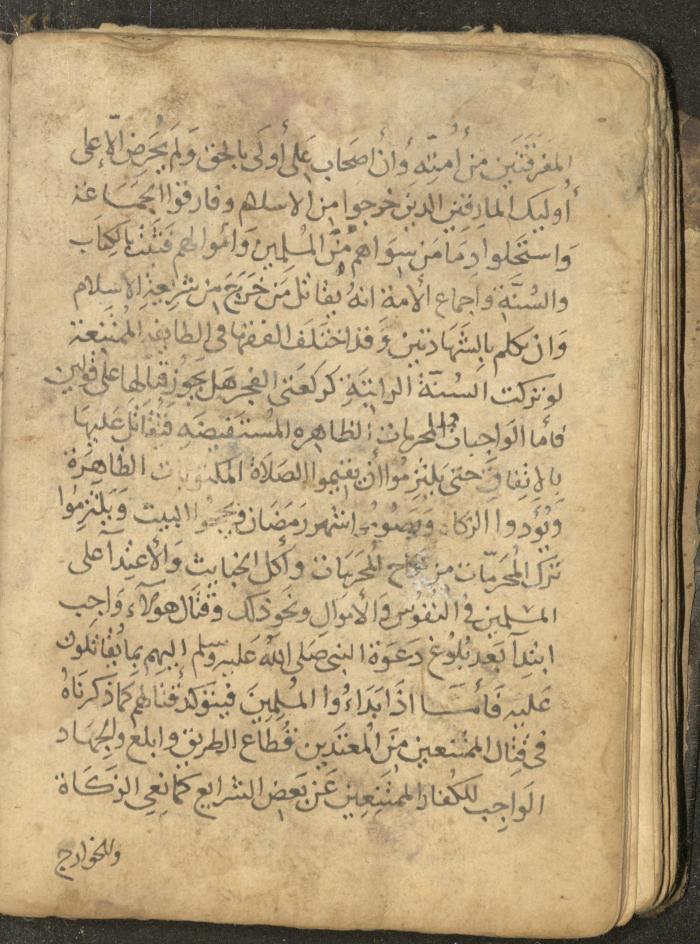 المفرقتين من أمته وأن اصحاب على أولى بالحق ولم يحرض الا على
أوليك المارقين الدين خرجوا من الاسلام وفارقوا الجماعة
واستحلوا دما من سواهم من المسلمين وأموالهم فثبت بالكتاب
والسنة واجماع الأمة انه يقاتل من خرج من شريعة الاسلام
وان تكلم بالشهادتين وقد اختلف الفقها فى الطايفة الممتنعة
لو تركت السنة الراتبة كركعتى الفجر هل يجوز قتالها على قولين
فأما الواجبات والمحرمات الظاهره المستفيضه فتقاتل عليها
بالاتفاق حتى يلتزموا أن يقيموا الصلاة المكتوبات الظاهرة
ويؤدوا الزكاه ويصوموا شهر رمضان ويحجوا البيت ويلتزموا
ترك المحرمات من نكاح المحرمات وأكل الخبايث والأعتدآ على
المسلمين فى النفوس والأموال ونحو ذلك وقتال هولآء واجب
ابتدآ بعد بلوغ دعوة النبى صلى الله عليه وسلم اليهم بما يقاتلون
عليه فأمــا اذا بداءوا المسلمين فيتوكد قتالهم كما ذكرناه
فى قتال الممتنعين من المعتدين قطاع الطريق وابلغ والجهاد
الواجب للكفار الممتنعين عن بعض الشرايع كمانعى الزكاة
والخوارج